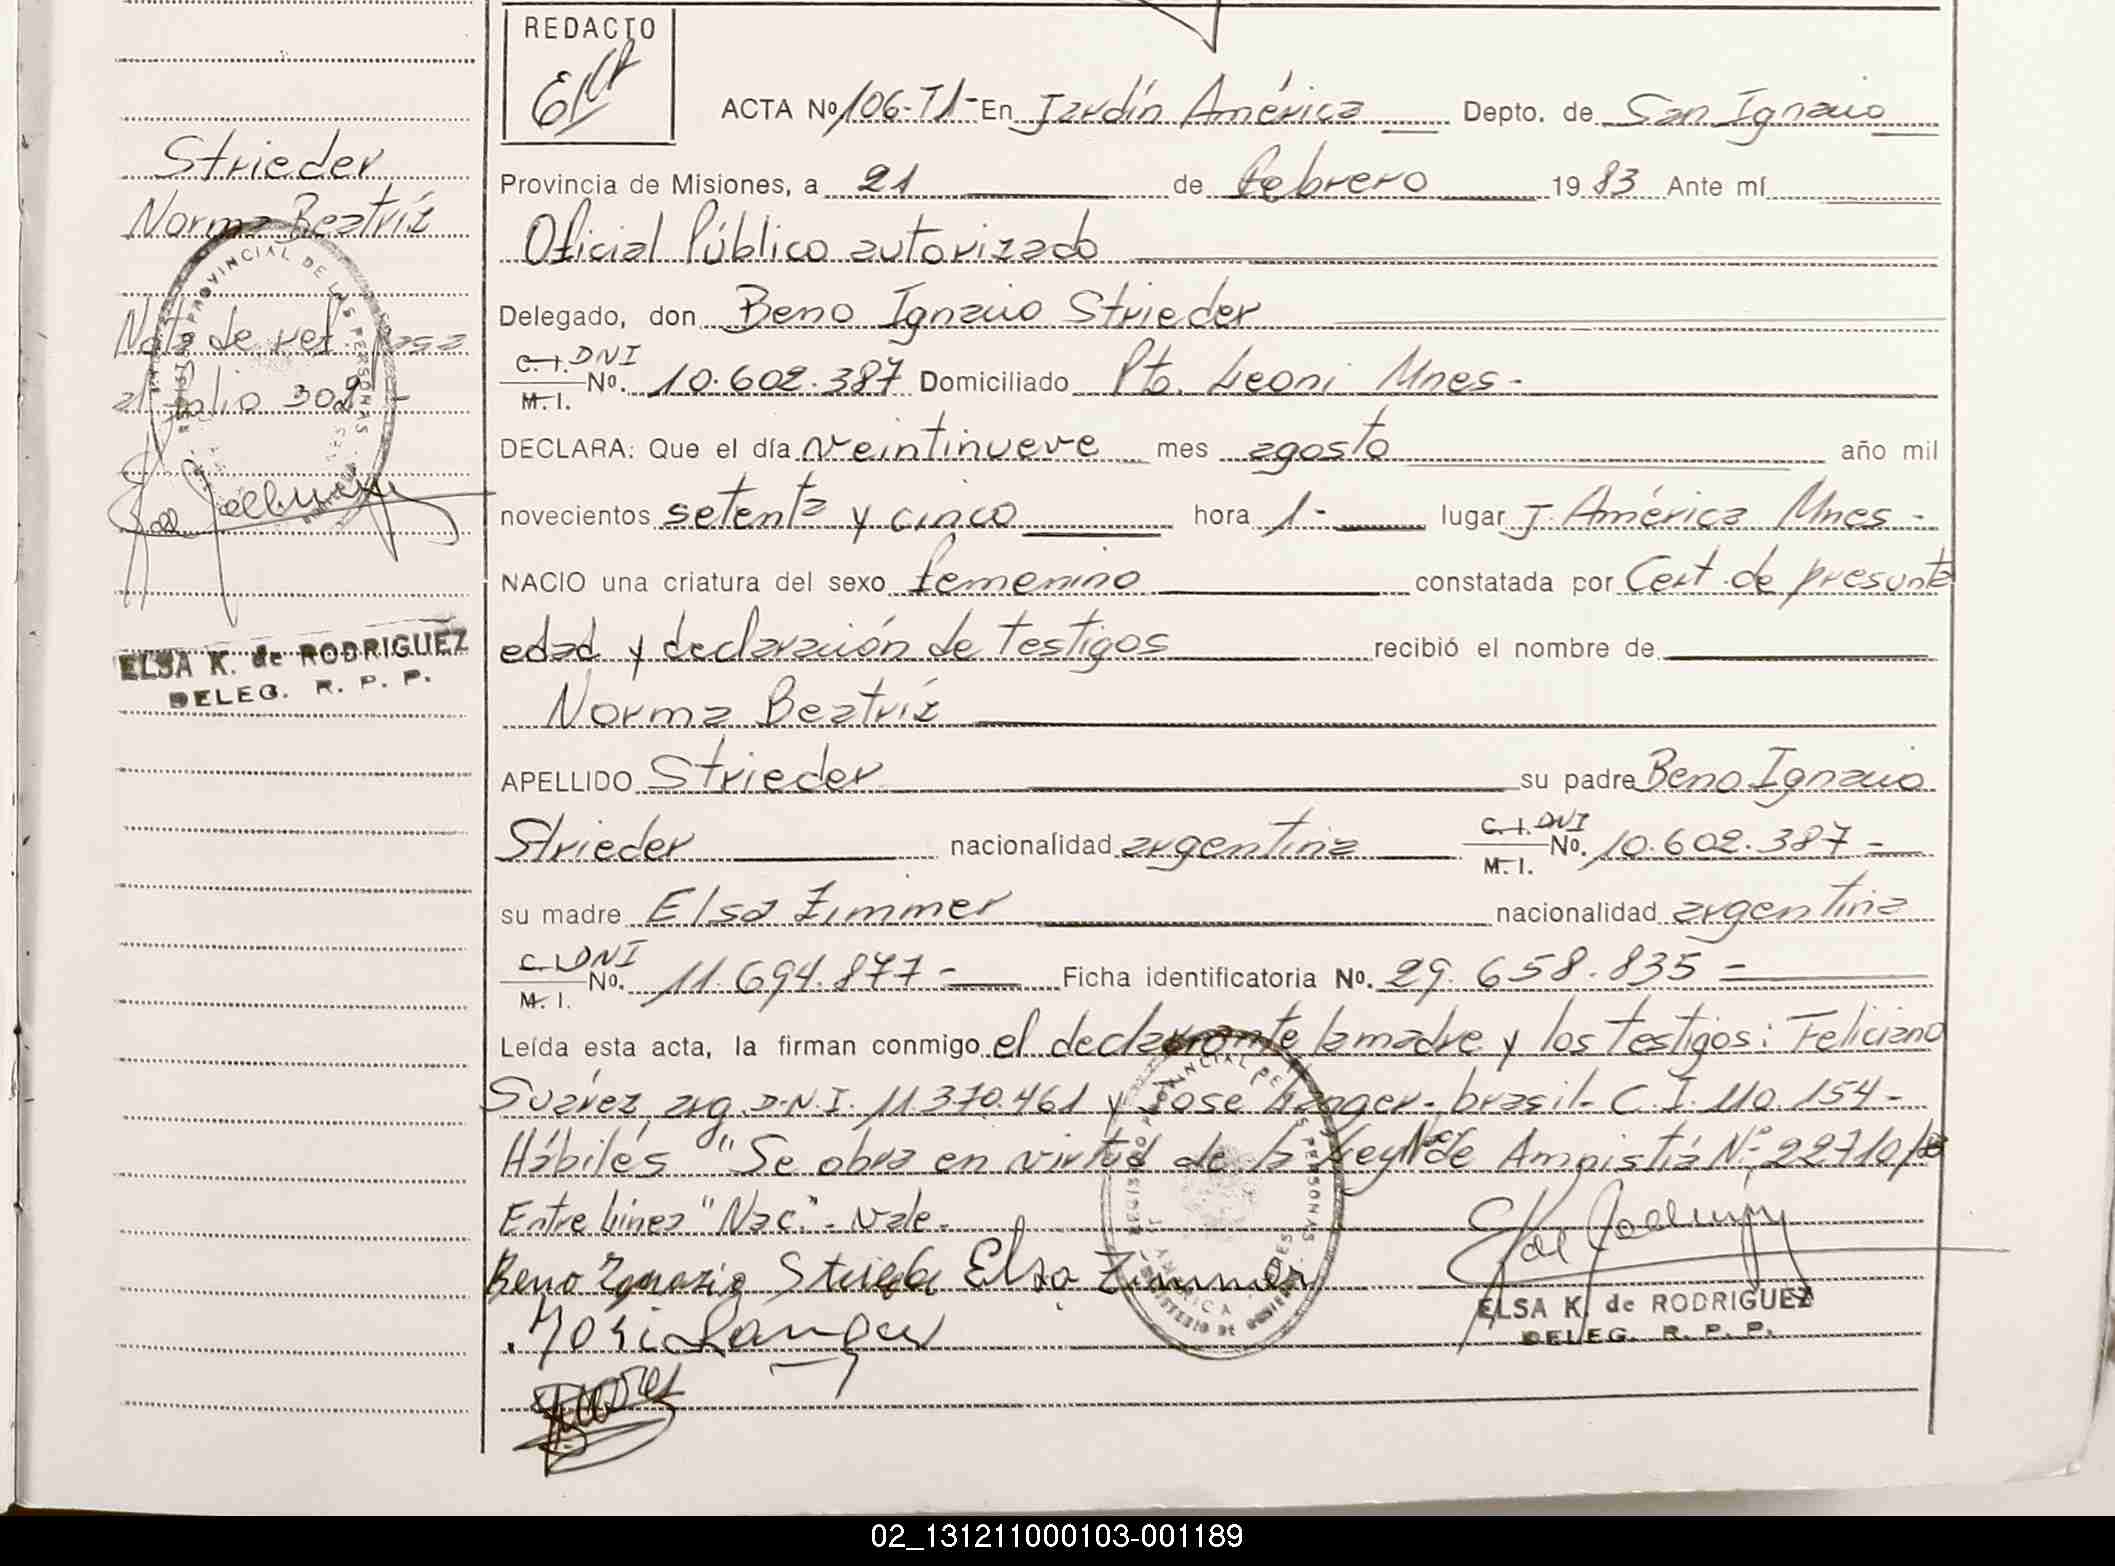 REDACTO
ACTA Nº 106-T1- En Jardín América Depto. de San Ignacio
Strieder
Provincia de Misiones, a 21 de febrero 19 83 Ante mí
Norma Beatríz
Oficial Público autorizado
Nota de ref. pasa
Delegado, don Beno Ignacio Strieder
al folio 308
C. I. DNI
M. I. No. 10.602.387 Domiciliado Pto. Leoni Mnes-
DECLARA: Que el día veintinueve mes agosto año mil
novecientos setenta y cinco hora 1- lugar J. América Mnes-
NACIO una criatura del sexo femenino constatada por Cert. de presunta
ELSA K. de RODRIGUEZ
DELEG. R. P. P.
edad y declaración de testigos recibió el nombre de
Norma Beatríz
APELLIDO Strieder su padre Beno Ignacio
Strieder nacionalidad argentina C. I. DNI M. I. No. 10.602.387-
su madre Elsa Zimmer nacionalidad argentina
C. I. DNI M. I. No. 11.694.877- Ficha identificatoria No. 29.658.835-
Leída esta acta, la firman conmigo el declarante la madre y los testigos: Feliciano
Suárez, arg. D.N.I. 11.370.461 y Jose Langer- brasil- C.I. 110.154-
Hábiles "Se obra en virtud de la Ley Nac de Amnistía Nº 22710/
Entre línea "Nac."- vale-
Beno Ignazio Strieder Elsa Zimmer
ELSA K. de RODRIGUEZ
DELEG. R. P. P.
José Langer
02_131211000103-001189